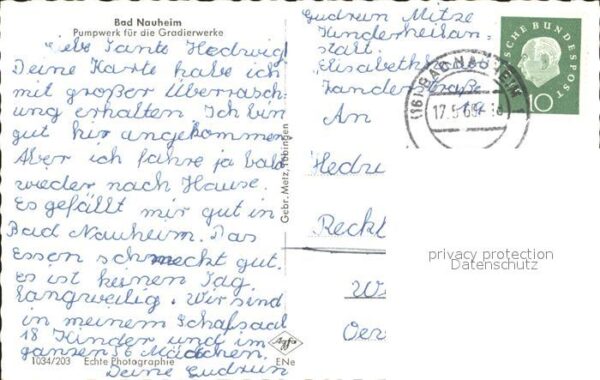 Bad Nauheim
Pumpwerk für die Gradierwerke
Liebe Tante Hedwig!
Deine Karte habe ich
mit großer Überrasch-
ung erhalten. Ich bin
gut hir angekommen
Aber ich fahre ja bald
wieder nach Hause.
Es gefällt mir gut in
Bad Nauheim. Das
Essen schmeckt gut.
es ist keinen Tag
Langweilig. Wir sind
in meinem Schafsaal
18 Kinder und im
ganzen 56 Mädchen.
Deine Gudrun
1034/203 Echte Photographie
Agfa
ENe
Gebr. Metz, Tübingen
Gudrun Mitze
Kinderheilan-
stalt
"Elisabethhaus
Zanderstraße
An
Hedw
Reckl
W
Oer
SCHE BUNDESPOST
10
(16) BAD NAUHEIM
17.5.6
privacy protection
Datenschutz